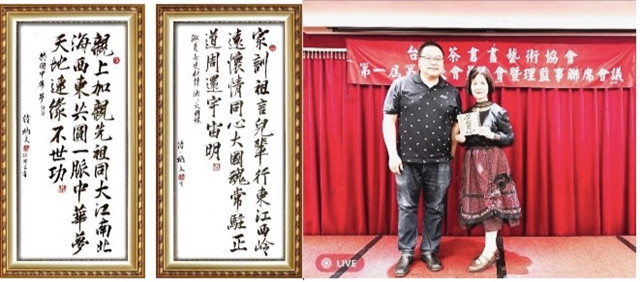 親上加親先祖同大江南北
海西東共圓一脈中華夢
天地速緣不世功
共圓中華夢
家訓祖言兒輩行東江西岭
遠懷情同心大國魂常駐正
道周還宇宙明
台 茶書畫藝術協會
第一屆 會 會暨理監事聯席會議
LIVE